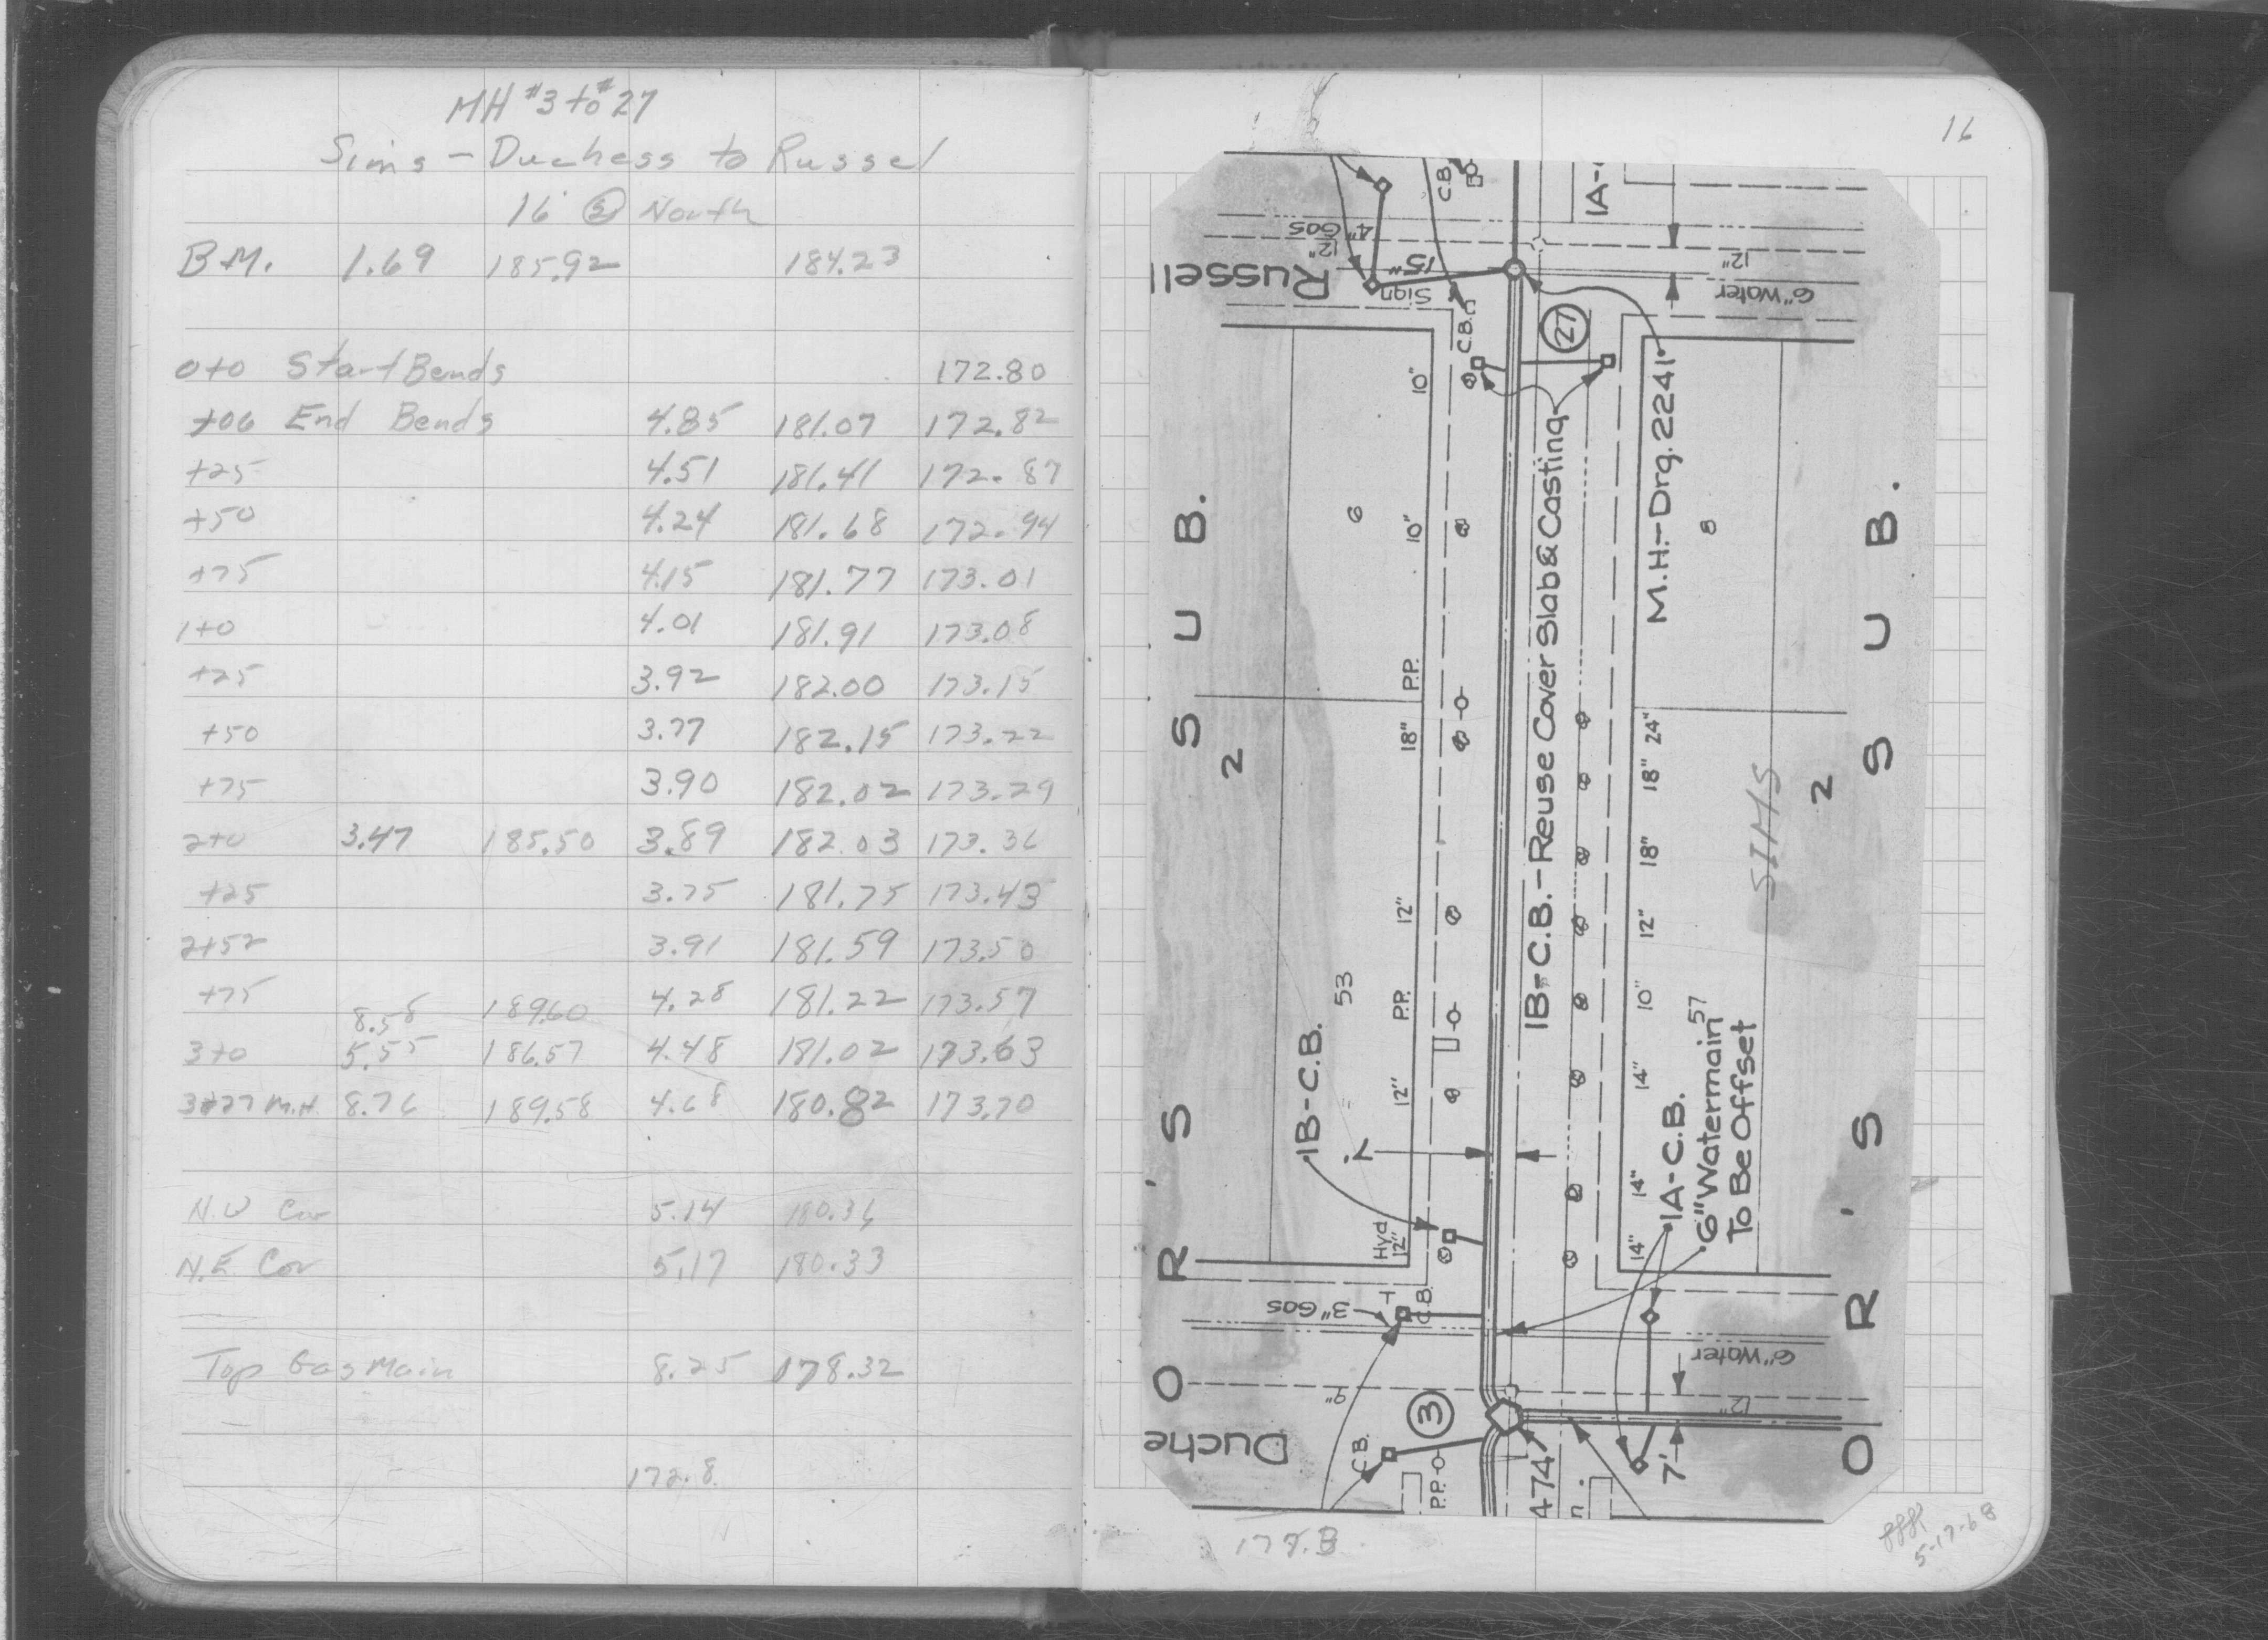 MH #3 to #27
Sims - Duchess to Russel
16 North
B.M. 1.69 185.92 184.23
0+0 Start Bends 172.80
+06 End Bends 4.85 181.07 172.82
+25 4.51 181.41 172.87
+50 4.24 181.68 172.94
+75 4.15 181.77 173.01
1+0 4.01 181.91 173.08
+25 3.92 182.00 173.15
+50 3.77 182.15 173.22
+75 3.90 182.02 173.29
2+0 3.47 185.50 3.89 182.03 173.36
+25 3.75 181.75 173.43
2+52 3.91 181.59 173.50
+75 4.28 181.22 173.57
8.58 189.60
3+0 5.55 186.57 4.48 181.02 173.63
3+27 M.H. 8.76 189.58 4.68 180.82 173.70
N.W Cor 5.14 180.36
N.E. Cor 5.17 180.33
Top Gas Main 8.25 178.32
172.8
16
Russell
4" Gas
12"
15"
Sign
C.B.
C.B.
1A-
12"
6" Water
27
10"
10"
P.P.
18"
12"
P.P.
12"
Hyd
12"
6
53
8
M.H.-Drg. 2241
1B-C.B.-Reuse Cover Slab & Casting
24"
18"
18"
12"
10"
14"
14"
14"
SIMS
1B-C.B.
7'
1A-C.B.
57
6" Watermain
To Be Offset
O R ' S 2 S U B.
O R ' S 2 S U B.
3" Gas
C.B.
9"
3
C.B.
P.P.
474
6" Water
12"
7'
Duche
5-17-68